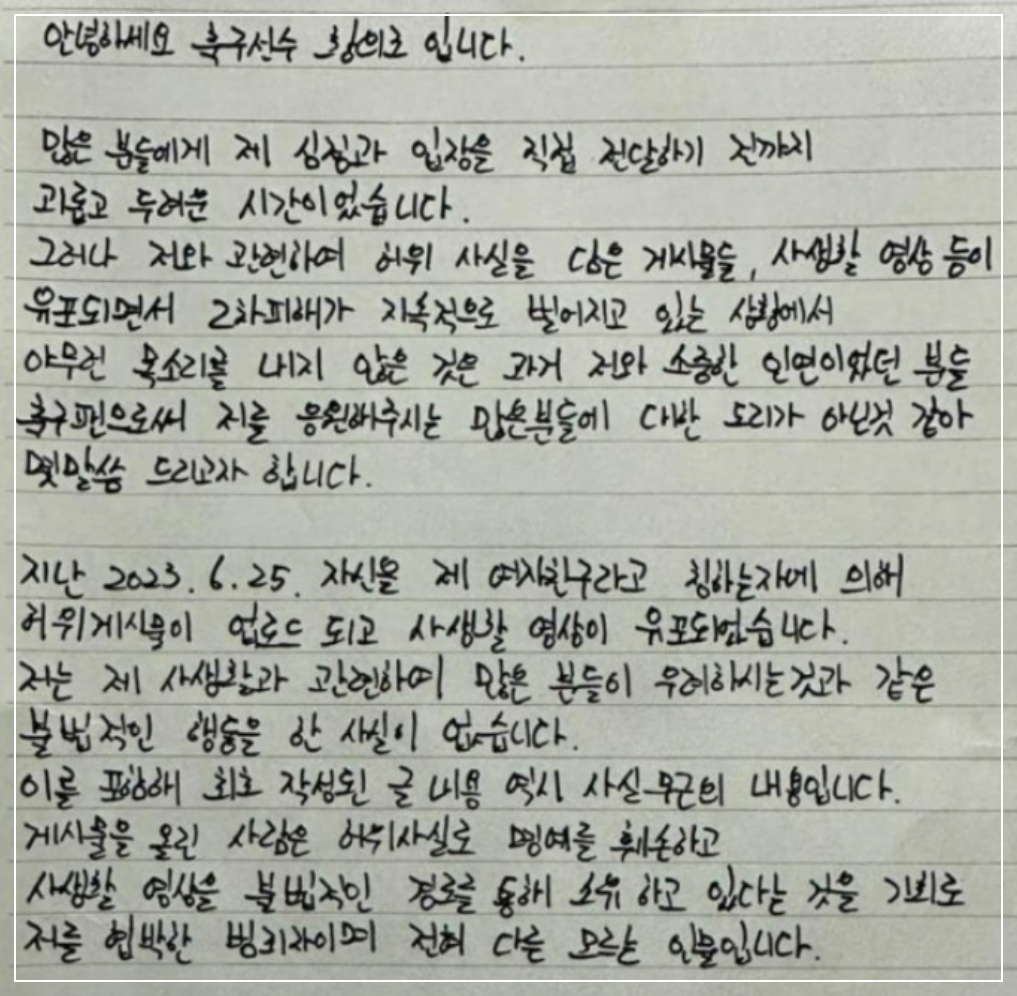 안녕하세요 축구선수 황의조 입니다.
많은 분들에게 제 심정과 입장을 직접 전달하기 전까지
괴롭고 두려운 시간이었습니다.
그러나 저와 관련하여 허위 사실을 담은 게시물들, 사생활 영상 등이
유포되면서 2차피해가 지속적으로 벌어지고 있는 상황에서
아무런 목소리를 내지 않은 것은 과거 저와 소중한 인연이었던 분들
축구팬으로써 저를 응원해주시는 많은분들에 대한 도리가 아닌것 같아
몇말씀 드리고자 합니다.
지난 2023.6.25. 자신을 제 여자친구라고 칭하는자에 의해
허위게시물이 업로드 되고 사생활 영상이 유포되었습니다.
저는 제 사생활과 관련하여 많은 분들이 우려하시는것과 같은
불법적인 행동을 한 사실이 없습니다.
이를 포함해 최초 작성된 글 내용 역시 사실무근의 내용입니다.
게시물을 올린 사람은 허위사실로 명예를 훼손하고
사생활 영상을 불법적인 경로를 통해 소유 하고 있다는 것을 기회로
저를 협박한 범죄자이며 전혀 다를 모르는 인물입니다.